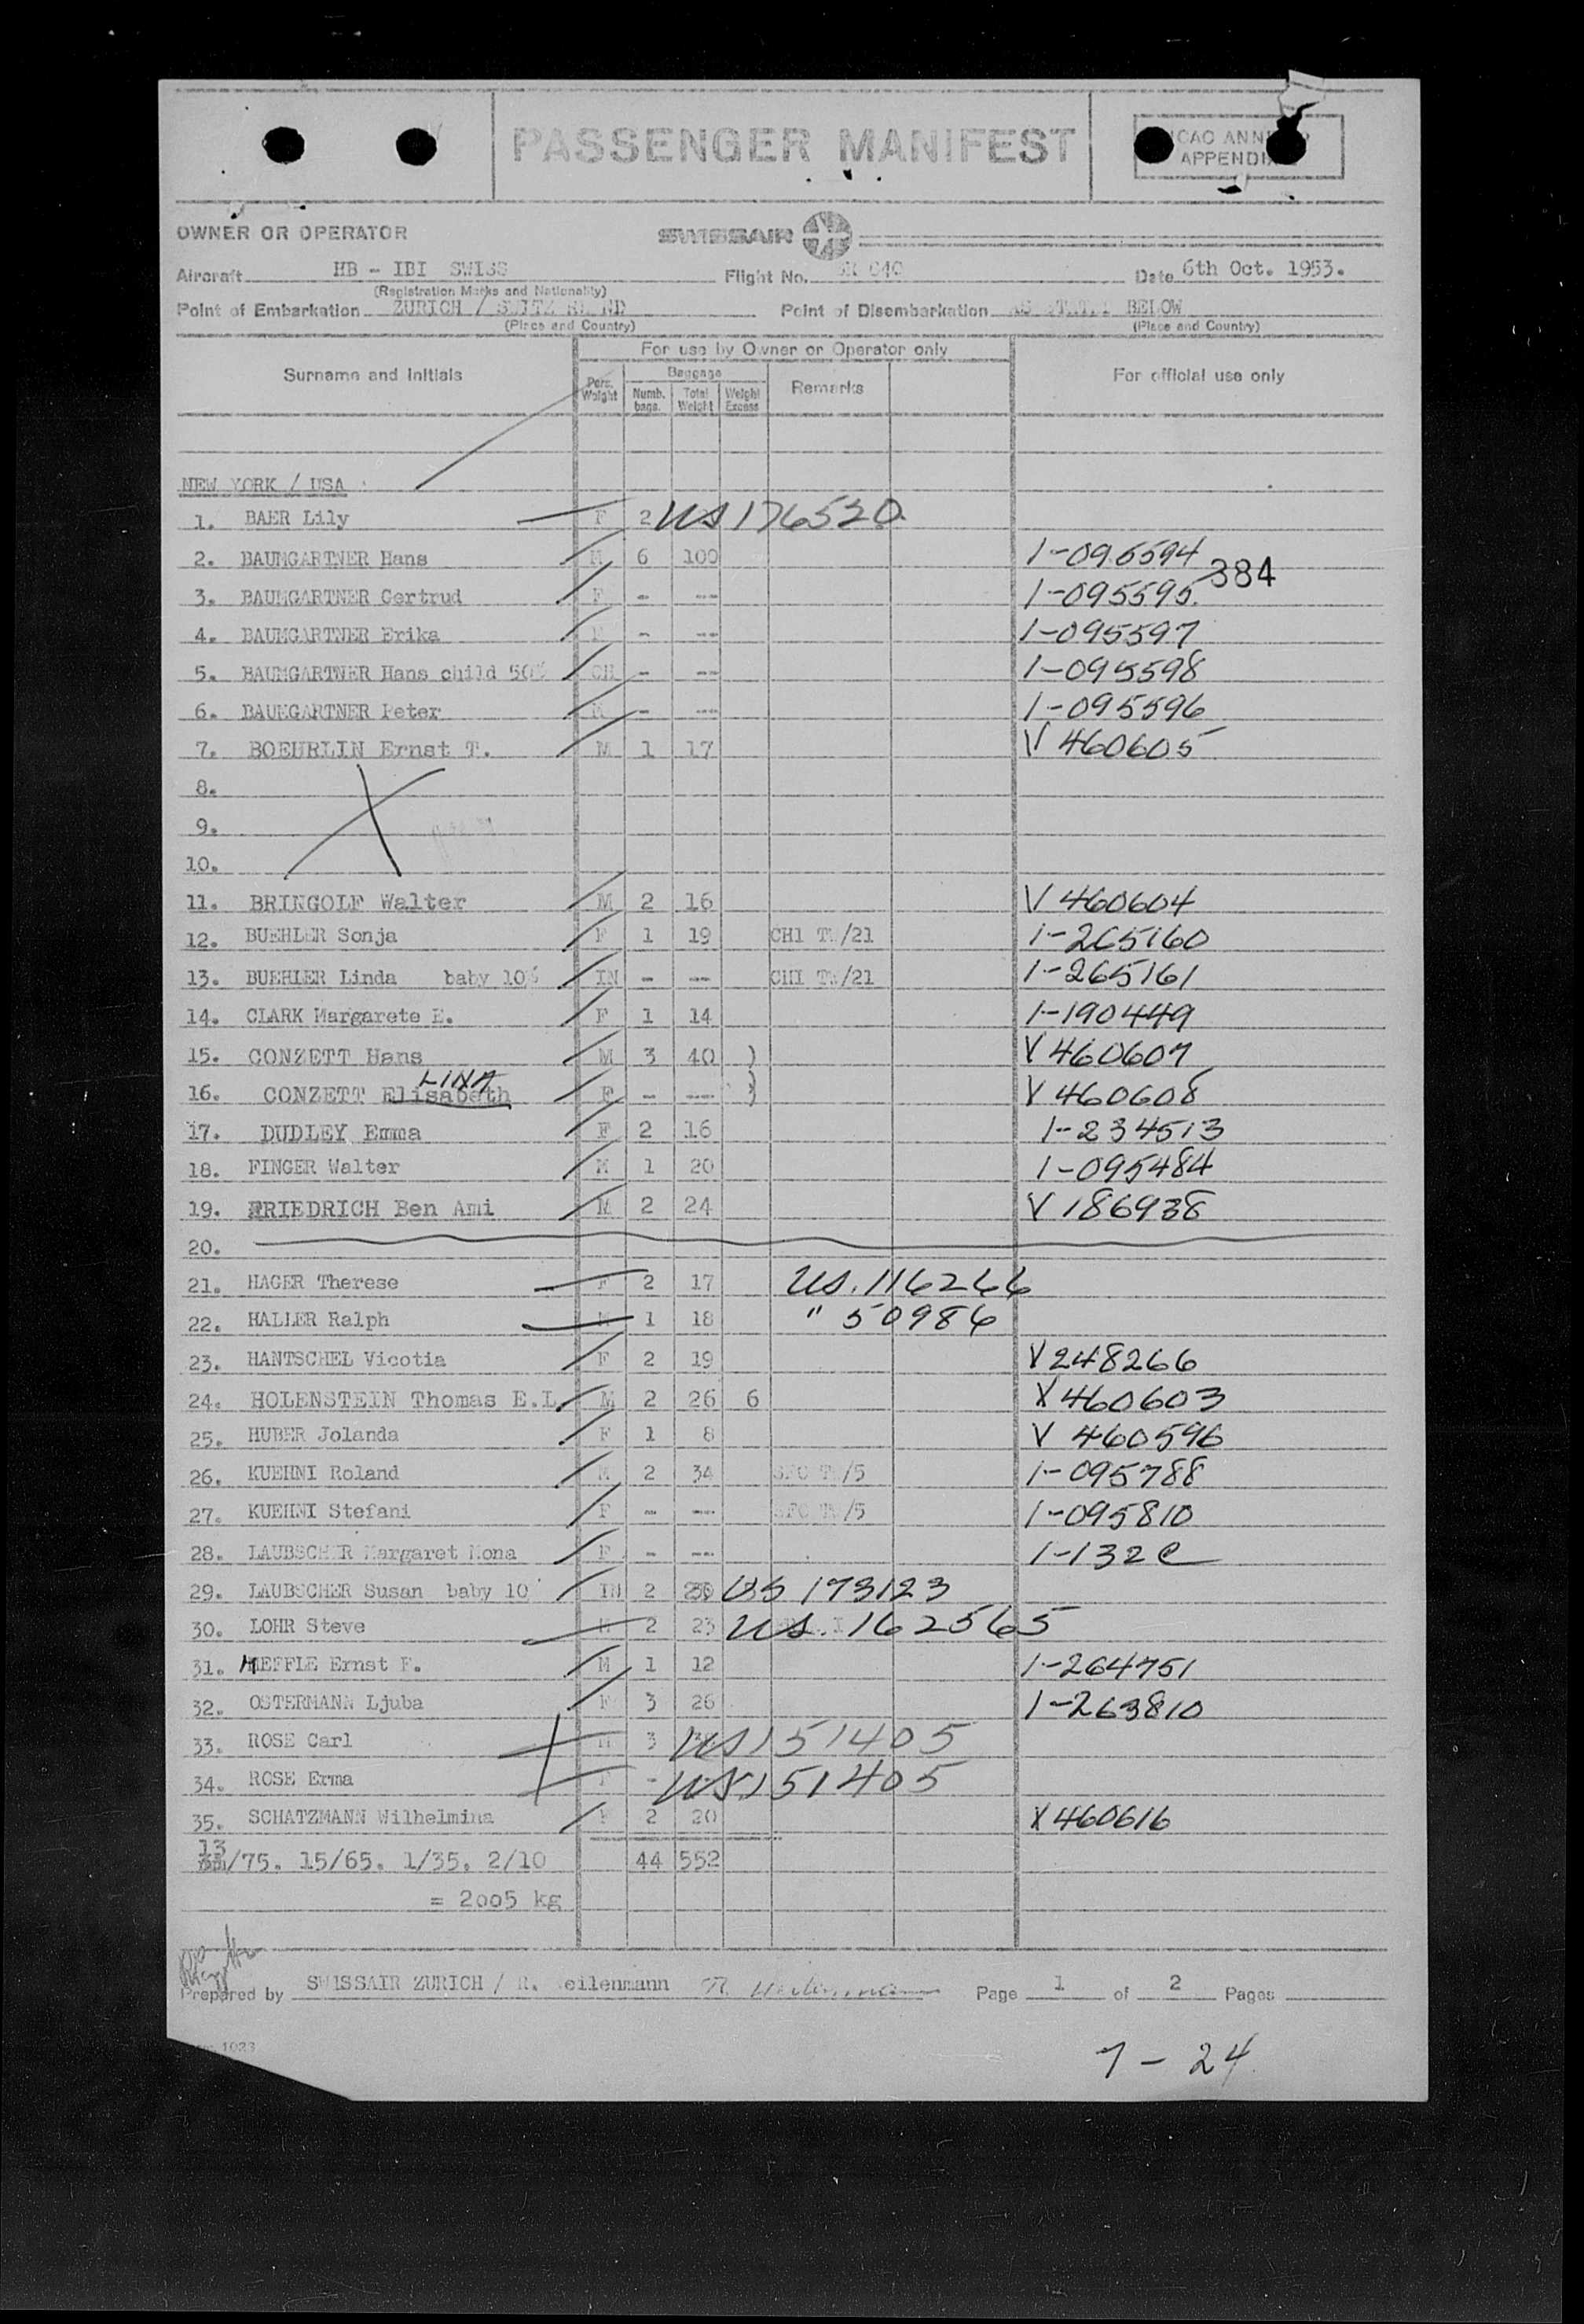 PASSENGER MANIFEST
ICAO ANNEX 9
APPENDIX
OWNER OR OPERATOR SWISSAIR
Aircraft HB - IBI SWISS Flight No. SR 040 Date 6th Oct. 1953.
(Registration Marks and Nationality)
Point of Embarkation ZURICH / SWITZERLAND Point of Disembarkation AS STATED BELOW
(Place and Country) (Place and Country)
For use by Owner or Operator only
Surname and Initials Pers. Weight Baggage Numb. bags. Total Weight Weight Excess Remarks For official use only
NEW YORK / USA
1. BAER Lily F 2 US 176520
2. BAUMGARTNER Hans M 6 100 1-095594
384
3. BAUMGARTNER Gertrud F - -- 1-095595
4. BAUMGARTNER Erika F - -- 1-095597
5. BAUMGARTNER Hans child 50% CH - -- 1-095598
6. BAUMGARTNER Peter M - --- 1-095596
7. BOEHRLIN Ernst T. M 1 17 V 460605
8.
9.
10.
11. BRINGOLF Walter M 2 16 V 460604
12. BUEHLER Sonja F 1 19 CHI TW/21 1-265160
13. BUEHLER Linda baby 10% IN - -- CHI TW/21 1-265161
14. CLARK Margarete E. F 1 14 1-190449
15. CONZETT Hans M 3 40 ) V 460607
LINA
16. CONZETT Elisabeth F - --- ) V 460608
17. DUDLEY Emma F 2 16 1-234513
18. FINGER Walter M 1 20 1-095484
19. FRIEDRICH Ben Ami M 2 24 V 186938
20.
21. HAGER Therese F 2 17 US. 116266
22. HALLER Ralph M 1 18 " 50986
23. HANTSCHEL Vicotia F 2 19 V 248266
24. HOLENSTEIN Thomas E.L. M 2 26 6 V 460603
25. HUBER Jolanda F 1 8 V 460596
26. KUEHNI Roland M 2 34 SFO TW/5 1-095788
27. KUEHNI Stefani F - --- SFO TW/5 1-095810
28. LAUBSCHER Margaret Mona F - -- 1-132 C
29. LAUBSCHER Susan baby 10 IN 2 US 173123
30. LOHR Steve M 2 23 US. 162565
31. MEFFLE Ernst F. M 1 12 1-264751
32. OSTERMANN Ljuba F 3 26 1-263810
33. ROSE Carl M 3 US 151405
34. ROSE Erma F - US 151405
35. SCHATZMANN Wilhelmina F 2 20 V 460616
13/75. 15/65. 1/35. 2/10 44 552
= 2005 kg
Prepared by SWISSAIR ZURICH / R. Weilenmann R. Weilenmann Page 1 of 2 Pages
1023
7 - 24